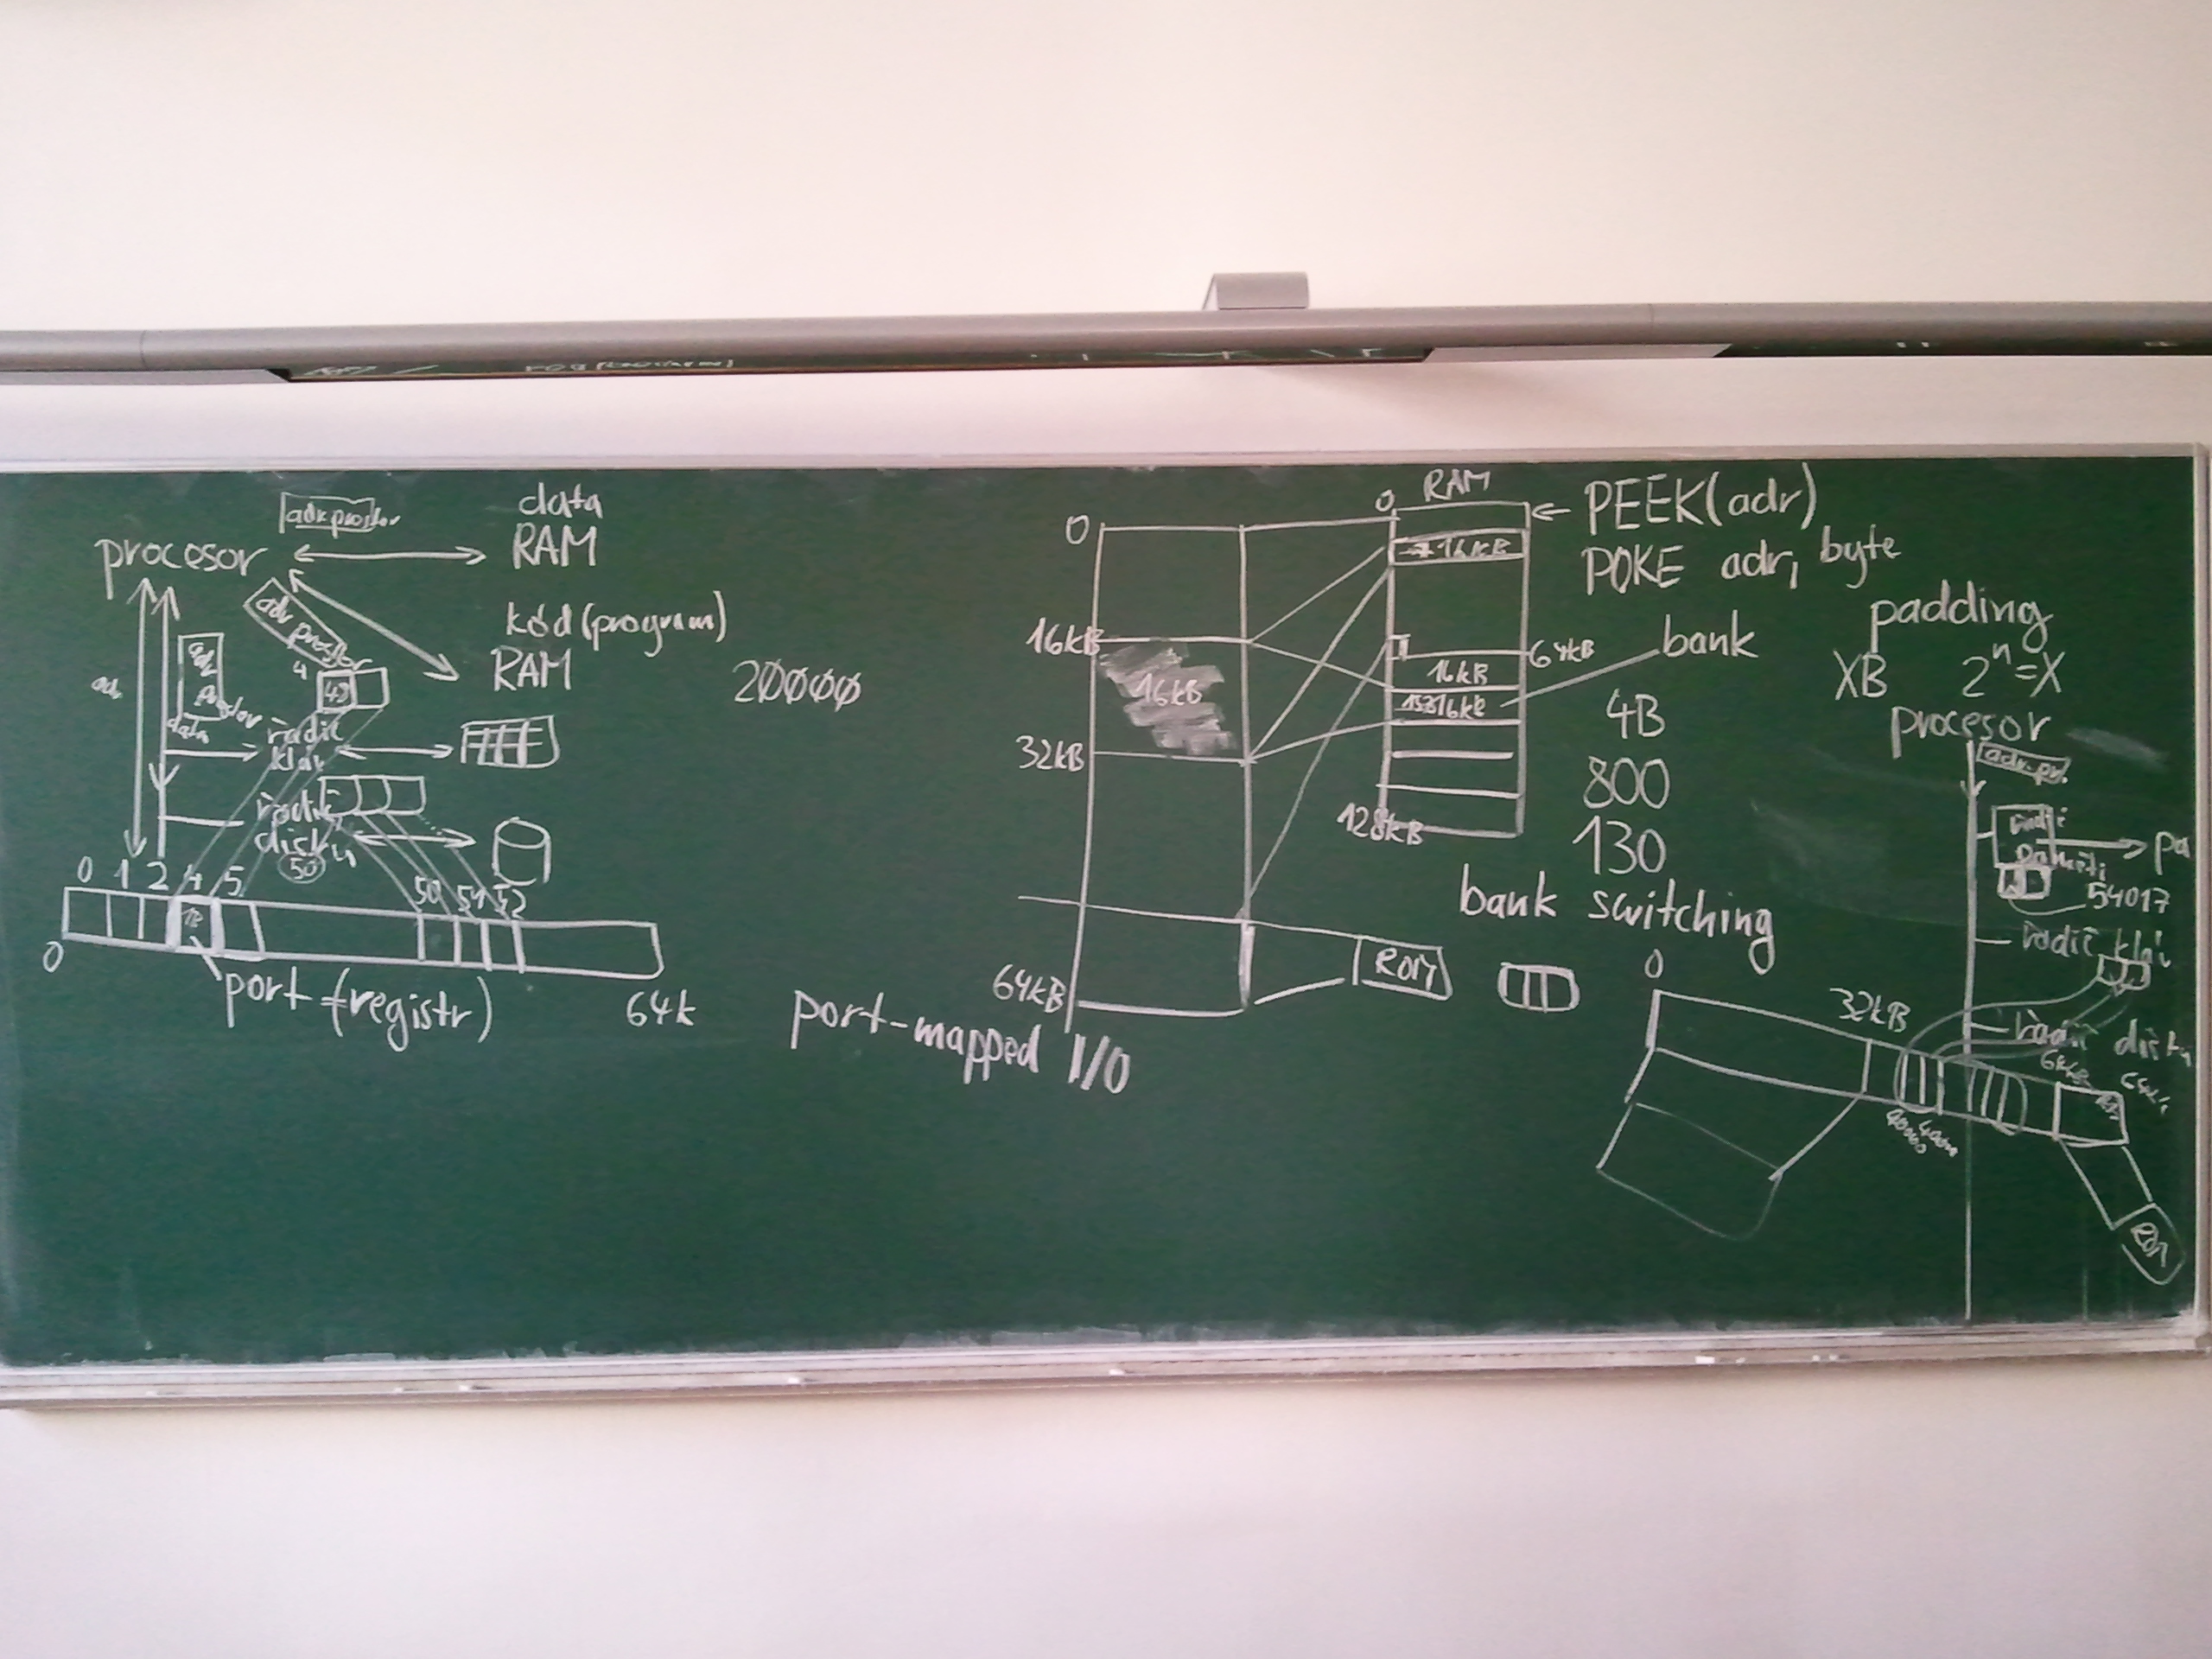 adr prostor
data
procesor
RAM
adr prostor
kód (program)
RAM
adr
adr
prostor
data
4
42
řadič
kláv
řadič
disku
50
0 1 2 4 5
50 51 52
0
port (registr)
64k
20000
port-mapped I/O
0
16kB
16kB
32kB
64kB
0
RAM
16kB
64kB
16kB
16kB
128kB
ROM
PEEK(adr)
POKE adr, byte
bank
4B
800
130
bank switching
padding
XB 2ⁿ=X
procesor
adr. pr.
řadič
paměti
pa
54017
řadič kláv
řadič disku
0
32kB
64k
ROM